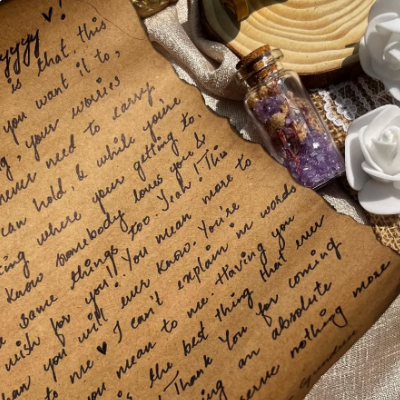 yyyyy ♥!
is that this
you want it to,
, your worries
never need to carry
can hold, & while you're
cing where your getting to,
know somebody loves you &
same things too. Yeah! This
wish for you!! You mean more to
than you will ever know. You're
you mean to me ♥ I can't explain in words
is the best thing that ever
! Thank You for coming
ing an absolute
serve nothing more